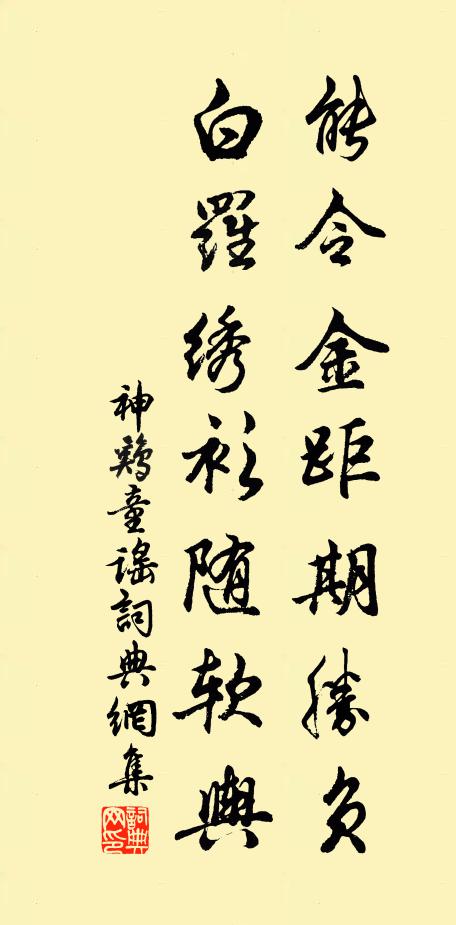 能令金距期勝負
白羅绣衫随软輿
神鷄童謠詞典網集
詞典網印